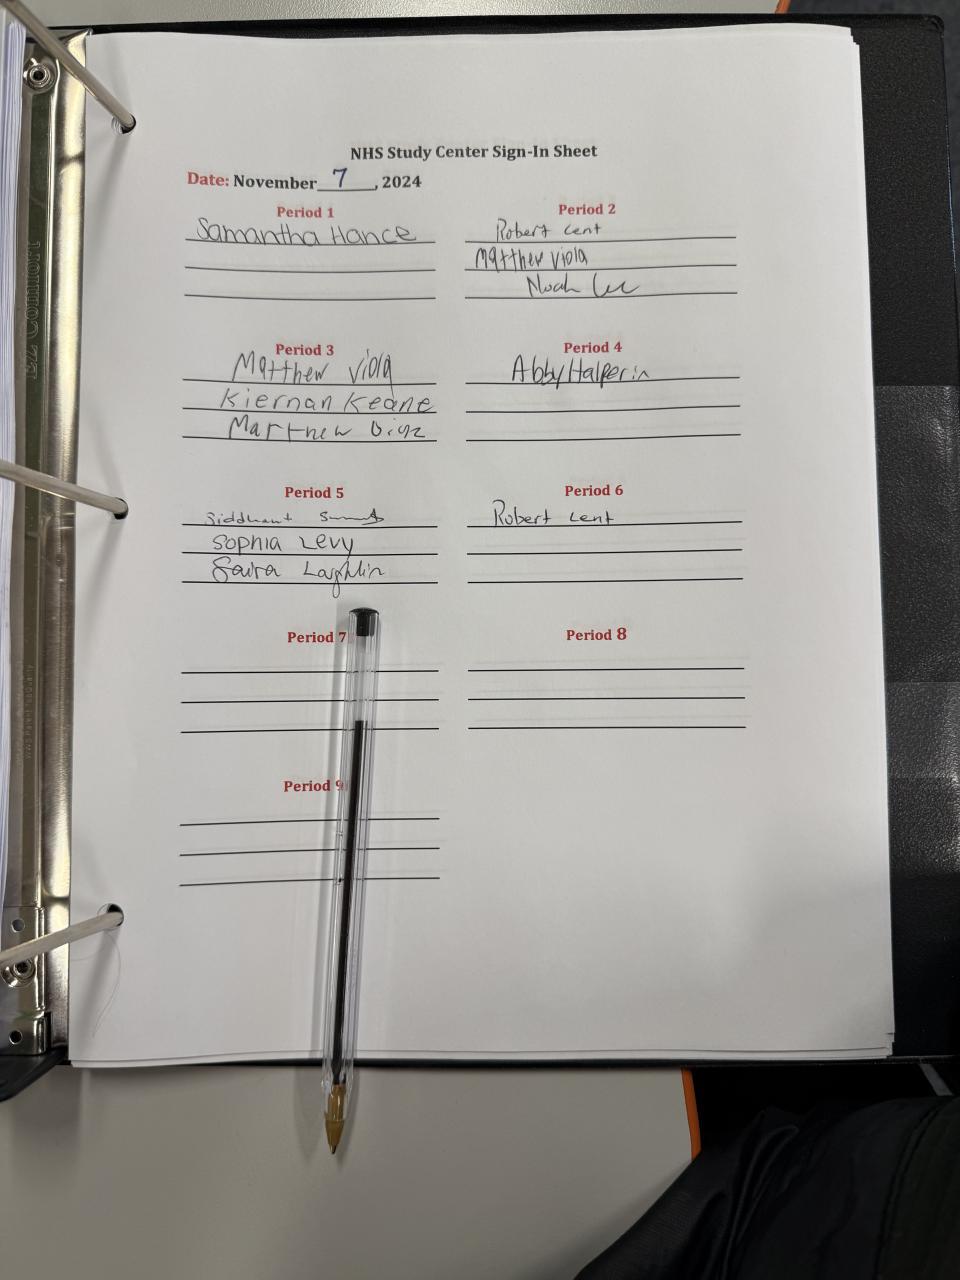 NHS Study Center Sign-In Sheet
Date: November 7, 2024
Period 1
Samantha Hance
Period 2
Robert Lent
Matthew Viola
Noah
Period 3
Matthew Viola
Kiernan Keane
Matthew
Period 4
Abby Halperin
Period 5
Siddhant
Sophia Levy
Laughlin
Period 6
Robert Lent
Period 7
Period 8
Period 9